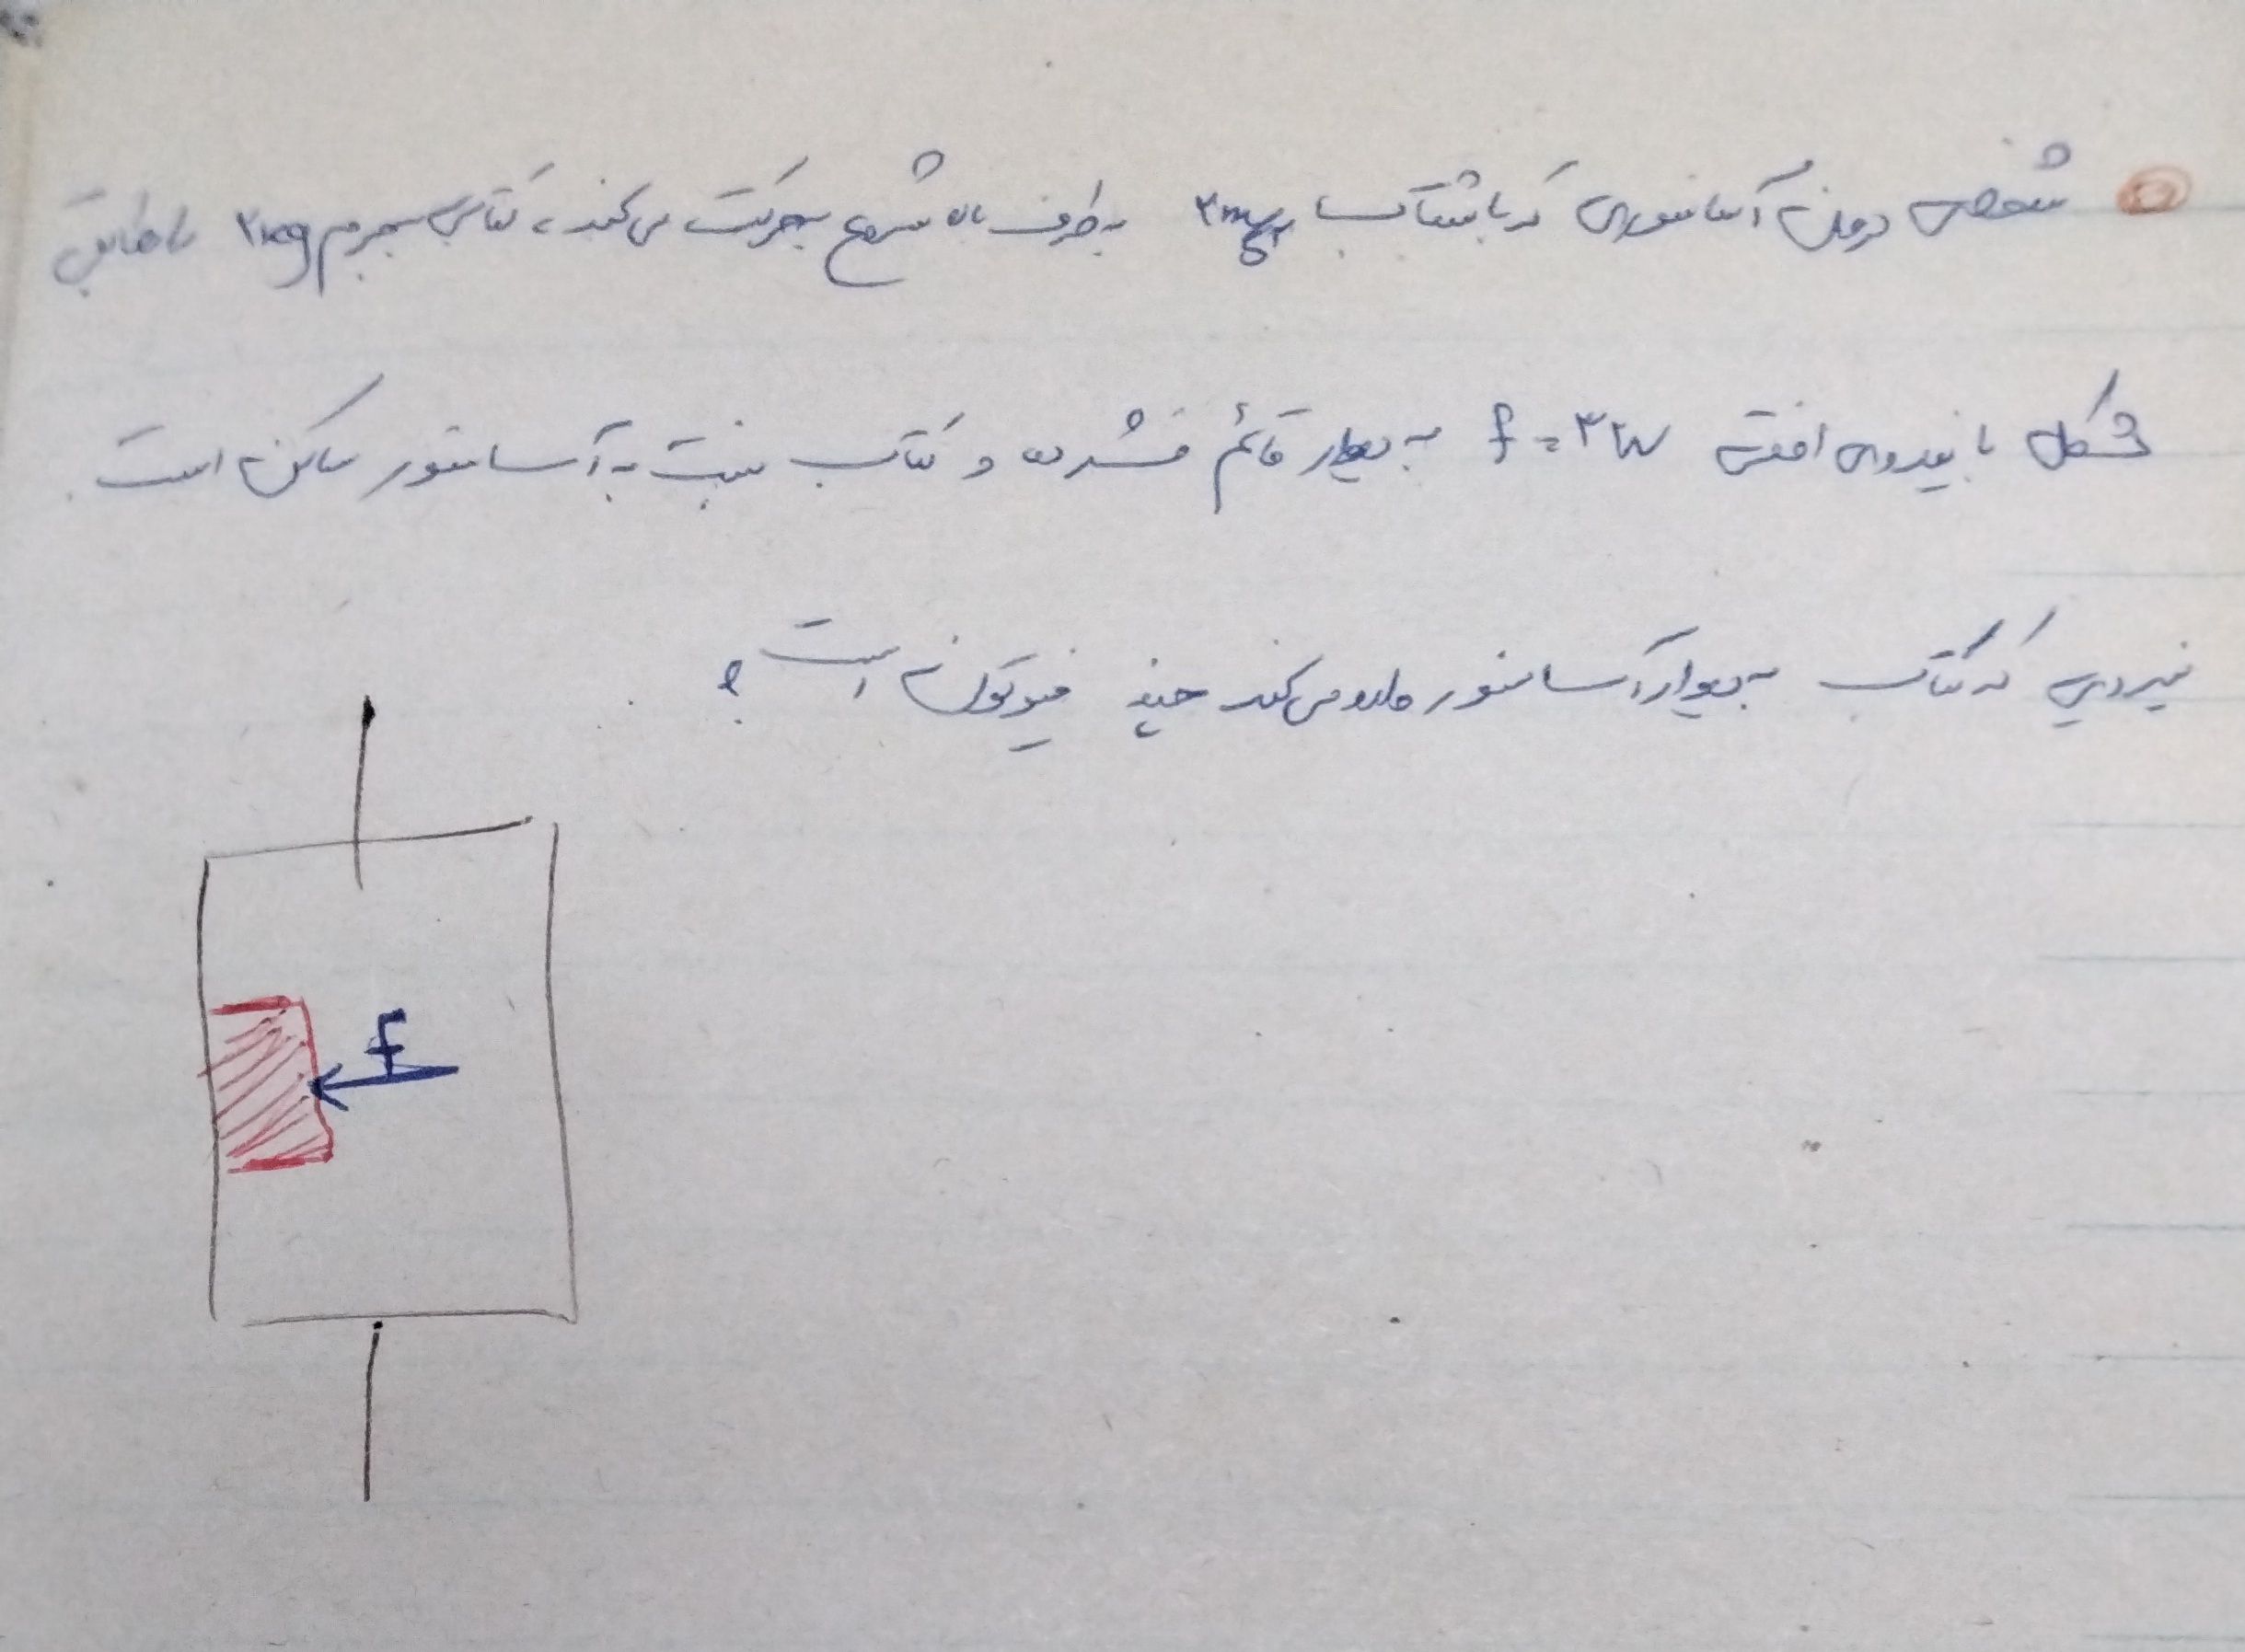 شخصی درون آسانسوری که با شتاب ۲m/s² به طرف بالا شروع به حرکت می‌کند، کتابی به جرم ۲kg را مطابق
شکل با نیروی افقی f = ۳۲N به دیوار قائم فشرده و کتاب نسبت به آسانسور ساکن است.
نیرویی که کتاب به دیوار آسانسور وارد می‌کند چند نیوتون است؟
f